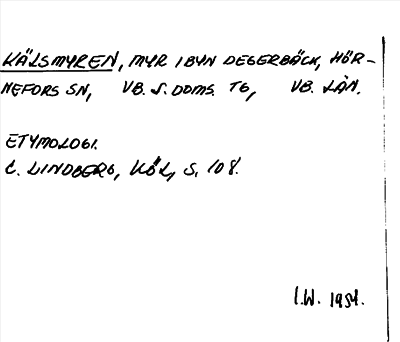 KÄLSMYREN, MYR I BYN DEGERBÄCK, HÖR-
NEFORS SN, VB. S. DOMS. TG, VB. LÄN.
ETYMOLOGI.
C. LINDBERG, KÖL, S. 108.
I.W. 1984.